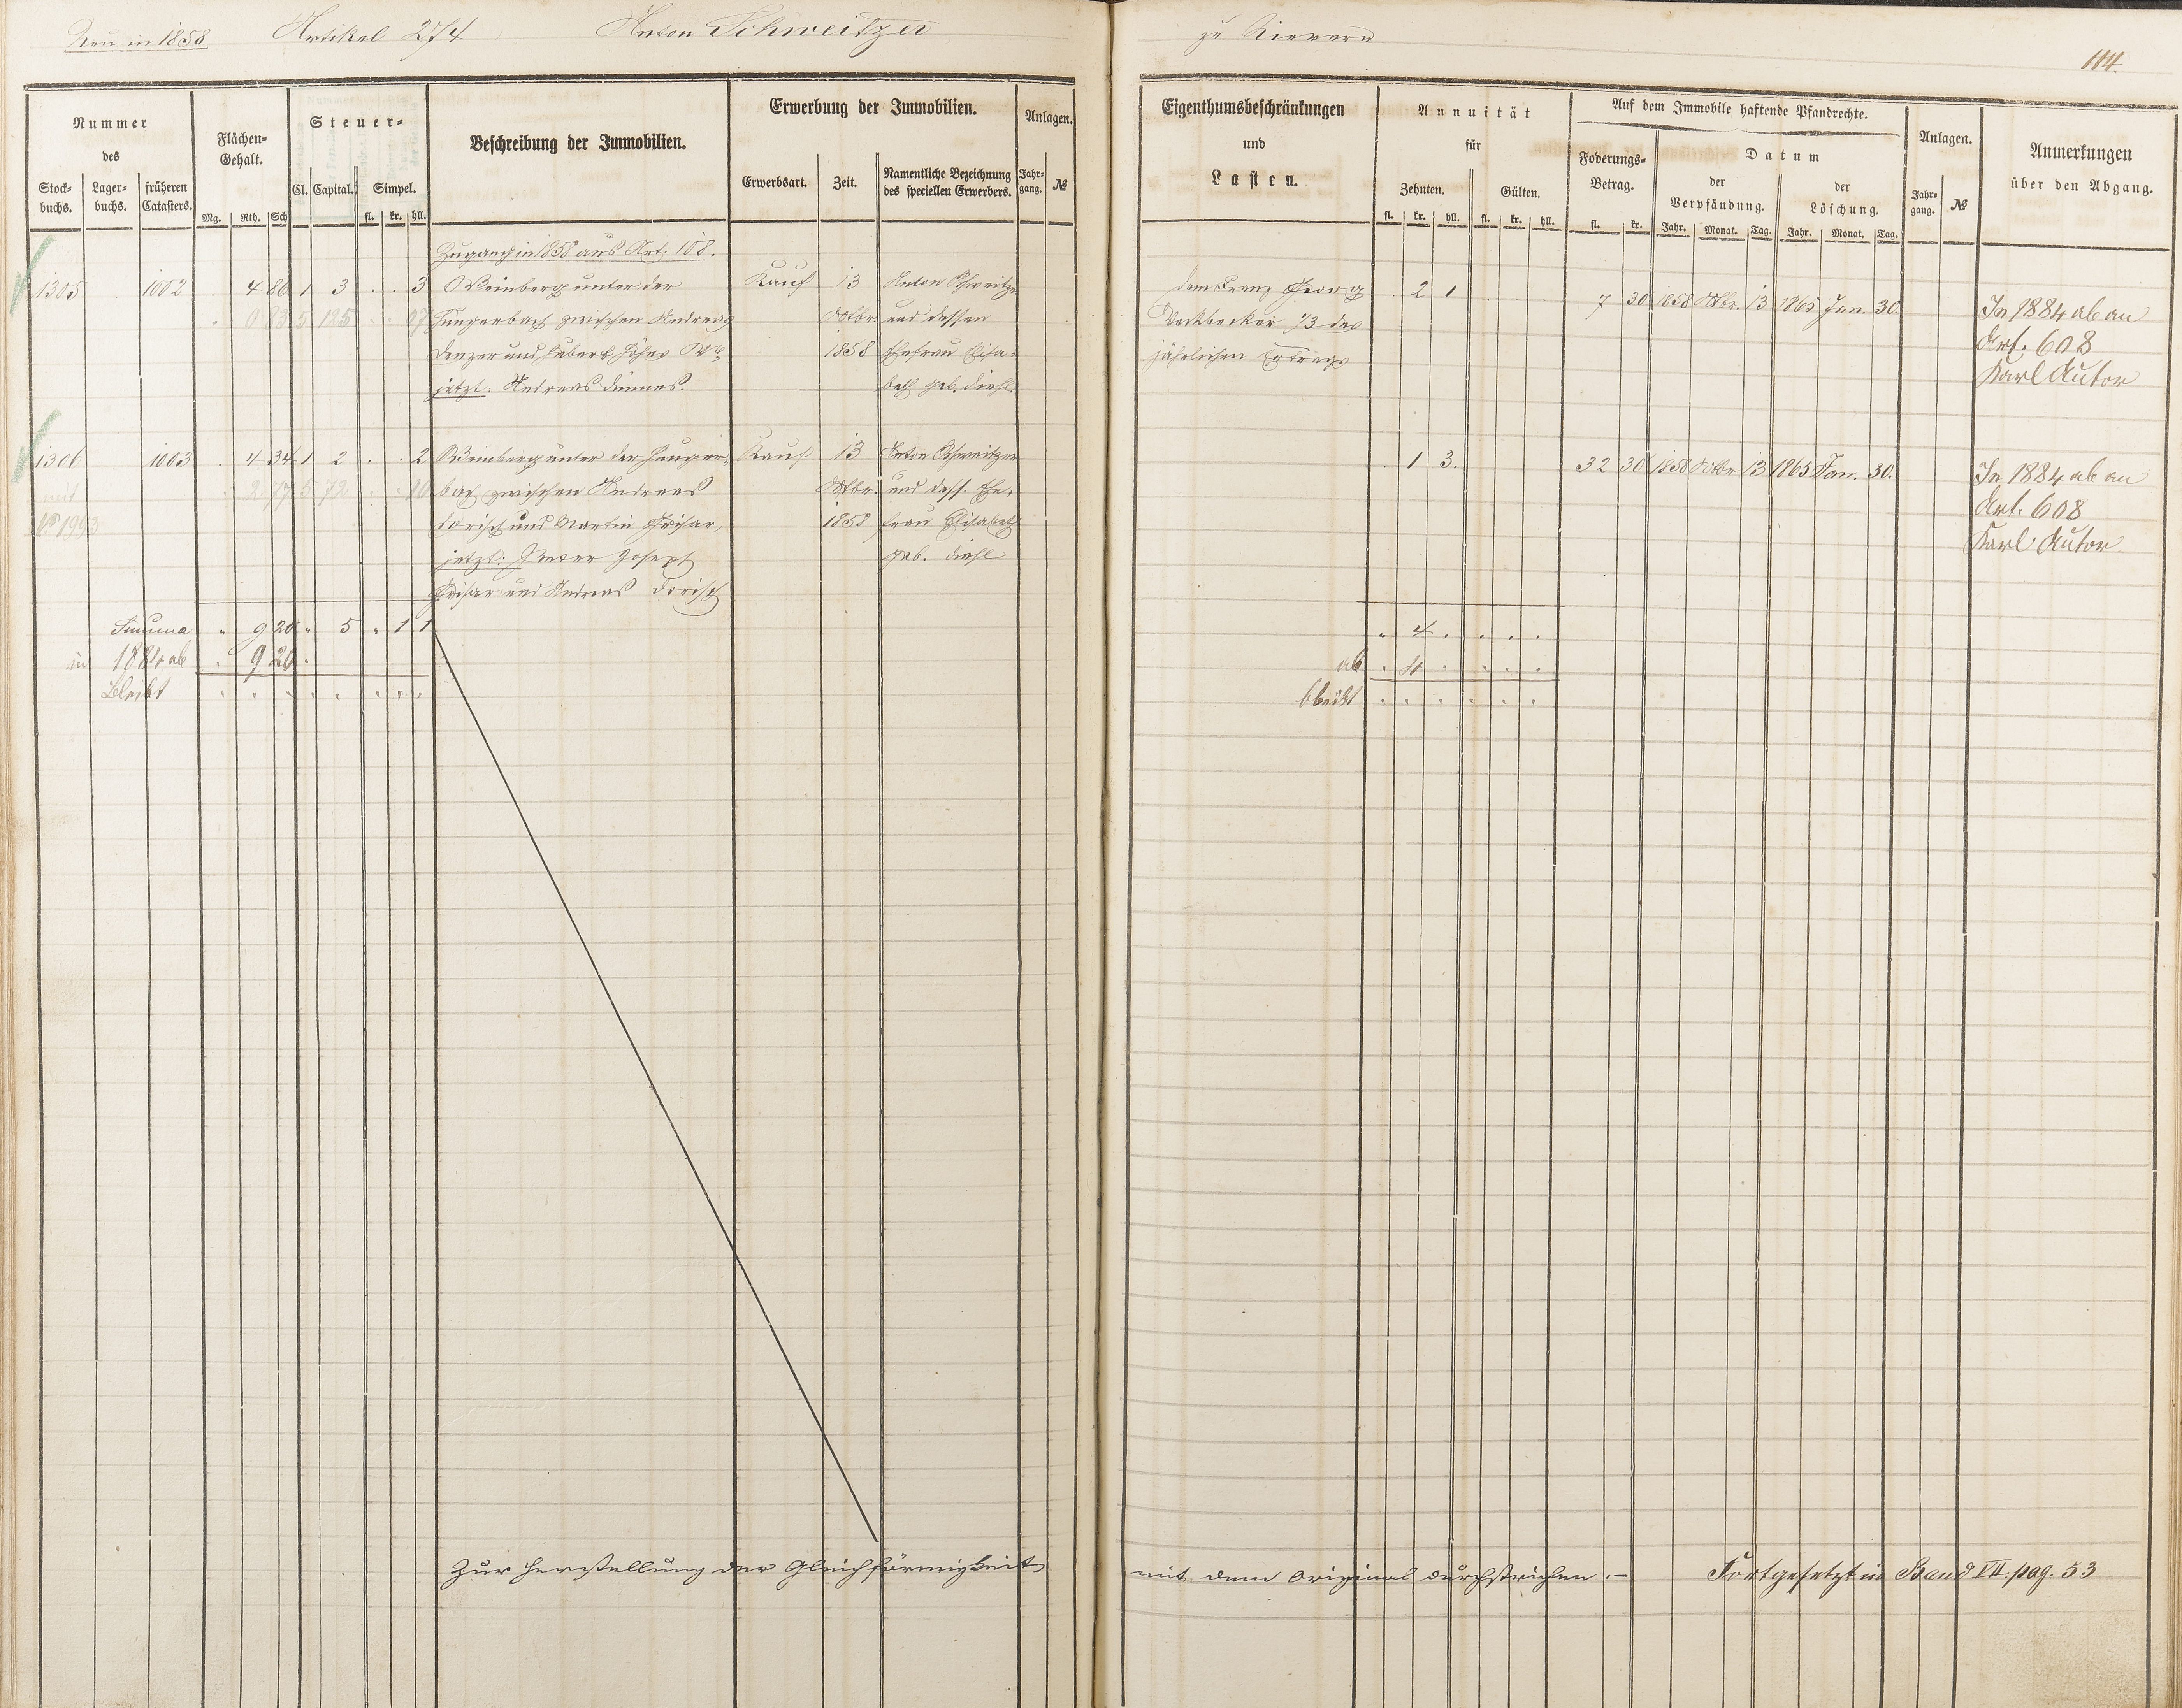 Neu in 1858 Artikel 274 Anton Schweitzer zu Kievern
114.
Nummer des
Stock-buchs. Lager-buchs. früheren Catasters.
Flächen-Gehalt.
Mg. Rth. Sch
Steuer-
Cl. Capital. Simpel.
fl. kr. hll.
Beschreibung der Immobilien.
Erwerbung der Immobilien.
Erwerbsart. Zeit. Namentliche Bezeichnung des speciellen Erwerbers.
Anlagen.
Jahr-gang. №
Eigenthumsbeschränkungen
und
Lasten.
Annuität
für
Zehnten. Gülten.
fl. kr. hll. fl. kr. hll.
Auf dem Immobile haftende Pfandrechte.
Foderungs-Betrag.
fl. kr.
Datum
der Verpfändung. der Löschung.
Jahr. Monat. Tag. Jahr. Monat. Tag.
Anlagen.
Jahr-gang. №
Anmerkungen
über den Abgang.
Zugang in 1858 aus Art. 108.
1305 1002 . 4 86 1 3 . . 3 Weinberg unter der Kauf 13 Anton Schweitzer
zwischen Andreas Octbr. und dessen
und 1858 Ehefrau Elisa-
jetzt: Andreas beth geb. Diehl.
dem Franz Georg . 2 1 7 30 1858 Octbr. 13 1865 Jan. 30. In 1884 ab an
1/3 des Art. 608
jährlichen Ertrags Karl Autor
1306 1003 . 4 34 1 2 . . 2 Weinberg unter der Kauf 13 Anton Schweitzer
mit . 2 77 5 72 . . 10 bach zwischen Andreas Octbr. und dess. Ehe-
№ 1993 Dorisch und Martin 1858 frau Elisabeth
jetzt: Joseph geb. Diehl
und Andreas Dorisch
. 1 3. 32 30 1858 Octbr 13 1865 Jan. 30. In 1884 ab an
Art. 608
Karl Autor
Summa " 9 20 " 5 " 1 1
in 1884 ab . 9 20 .
Bleibt
" 4 . . . .
ab . 4 . . . .
bleibt
Zur Herstellung der Gleichförmigkeit mit dem Original durchstrichen.— Fortgesetzt in Band VII. pag. 53